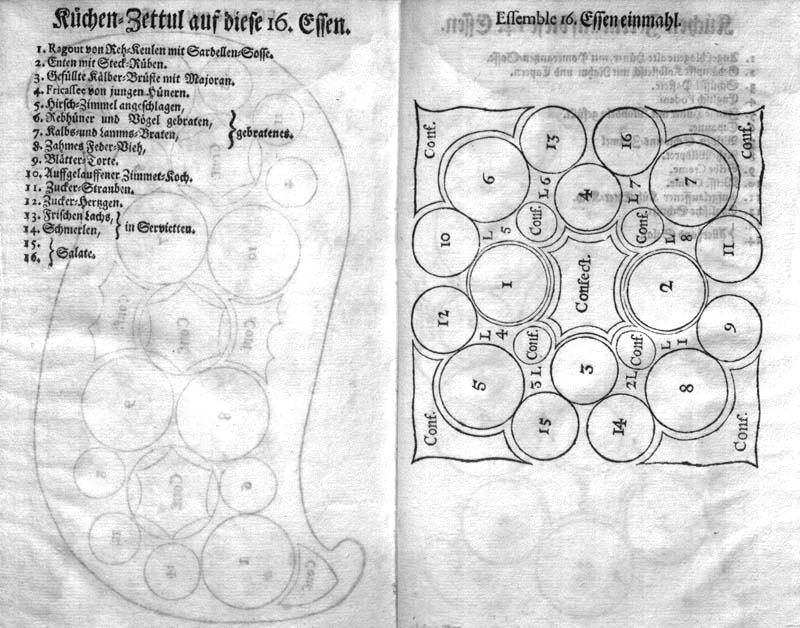 Küchen-Zettul auf diese 16. Essen.
1. Ragout von Reh-Keulen mit Sardellen-Sosse.
2. Enten mit Steck-Rüben.
3. Gefüllte Kälber-Brüste mit Majoran.
4. Fricassee von jungen Hünern.
5. Hirsch-Zimmel angeschlagen,
6. Rebhüner und Vögel gebraten,
7. Kalbs-und Lamms-Braten,
8. Zahmes Feder-Vieh,
gebratenes.
9. Blätter-Torte.
10. Auffgelauffener Zimmet-Koch.
11. Zucker-Strauben.
12. Zucker-Herzgen.
13. Frischen Lachs,
14. Schmerlen,
in Servietten.
15.
16.
Salate.
Essemble 16. Essen einmahl.
Conf.
13
16
Conf.
6
L 6
4
L 7
7
10
L 5
Conf.
Conf.
L 8
11
1
Confect.
2
12
L 4
Conf.
Conf.
L 1
9
5
3 L
3
2 L
8
Conf.
15
14
Conf.